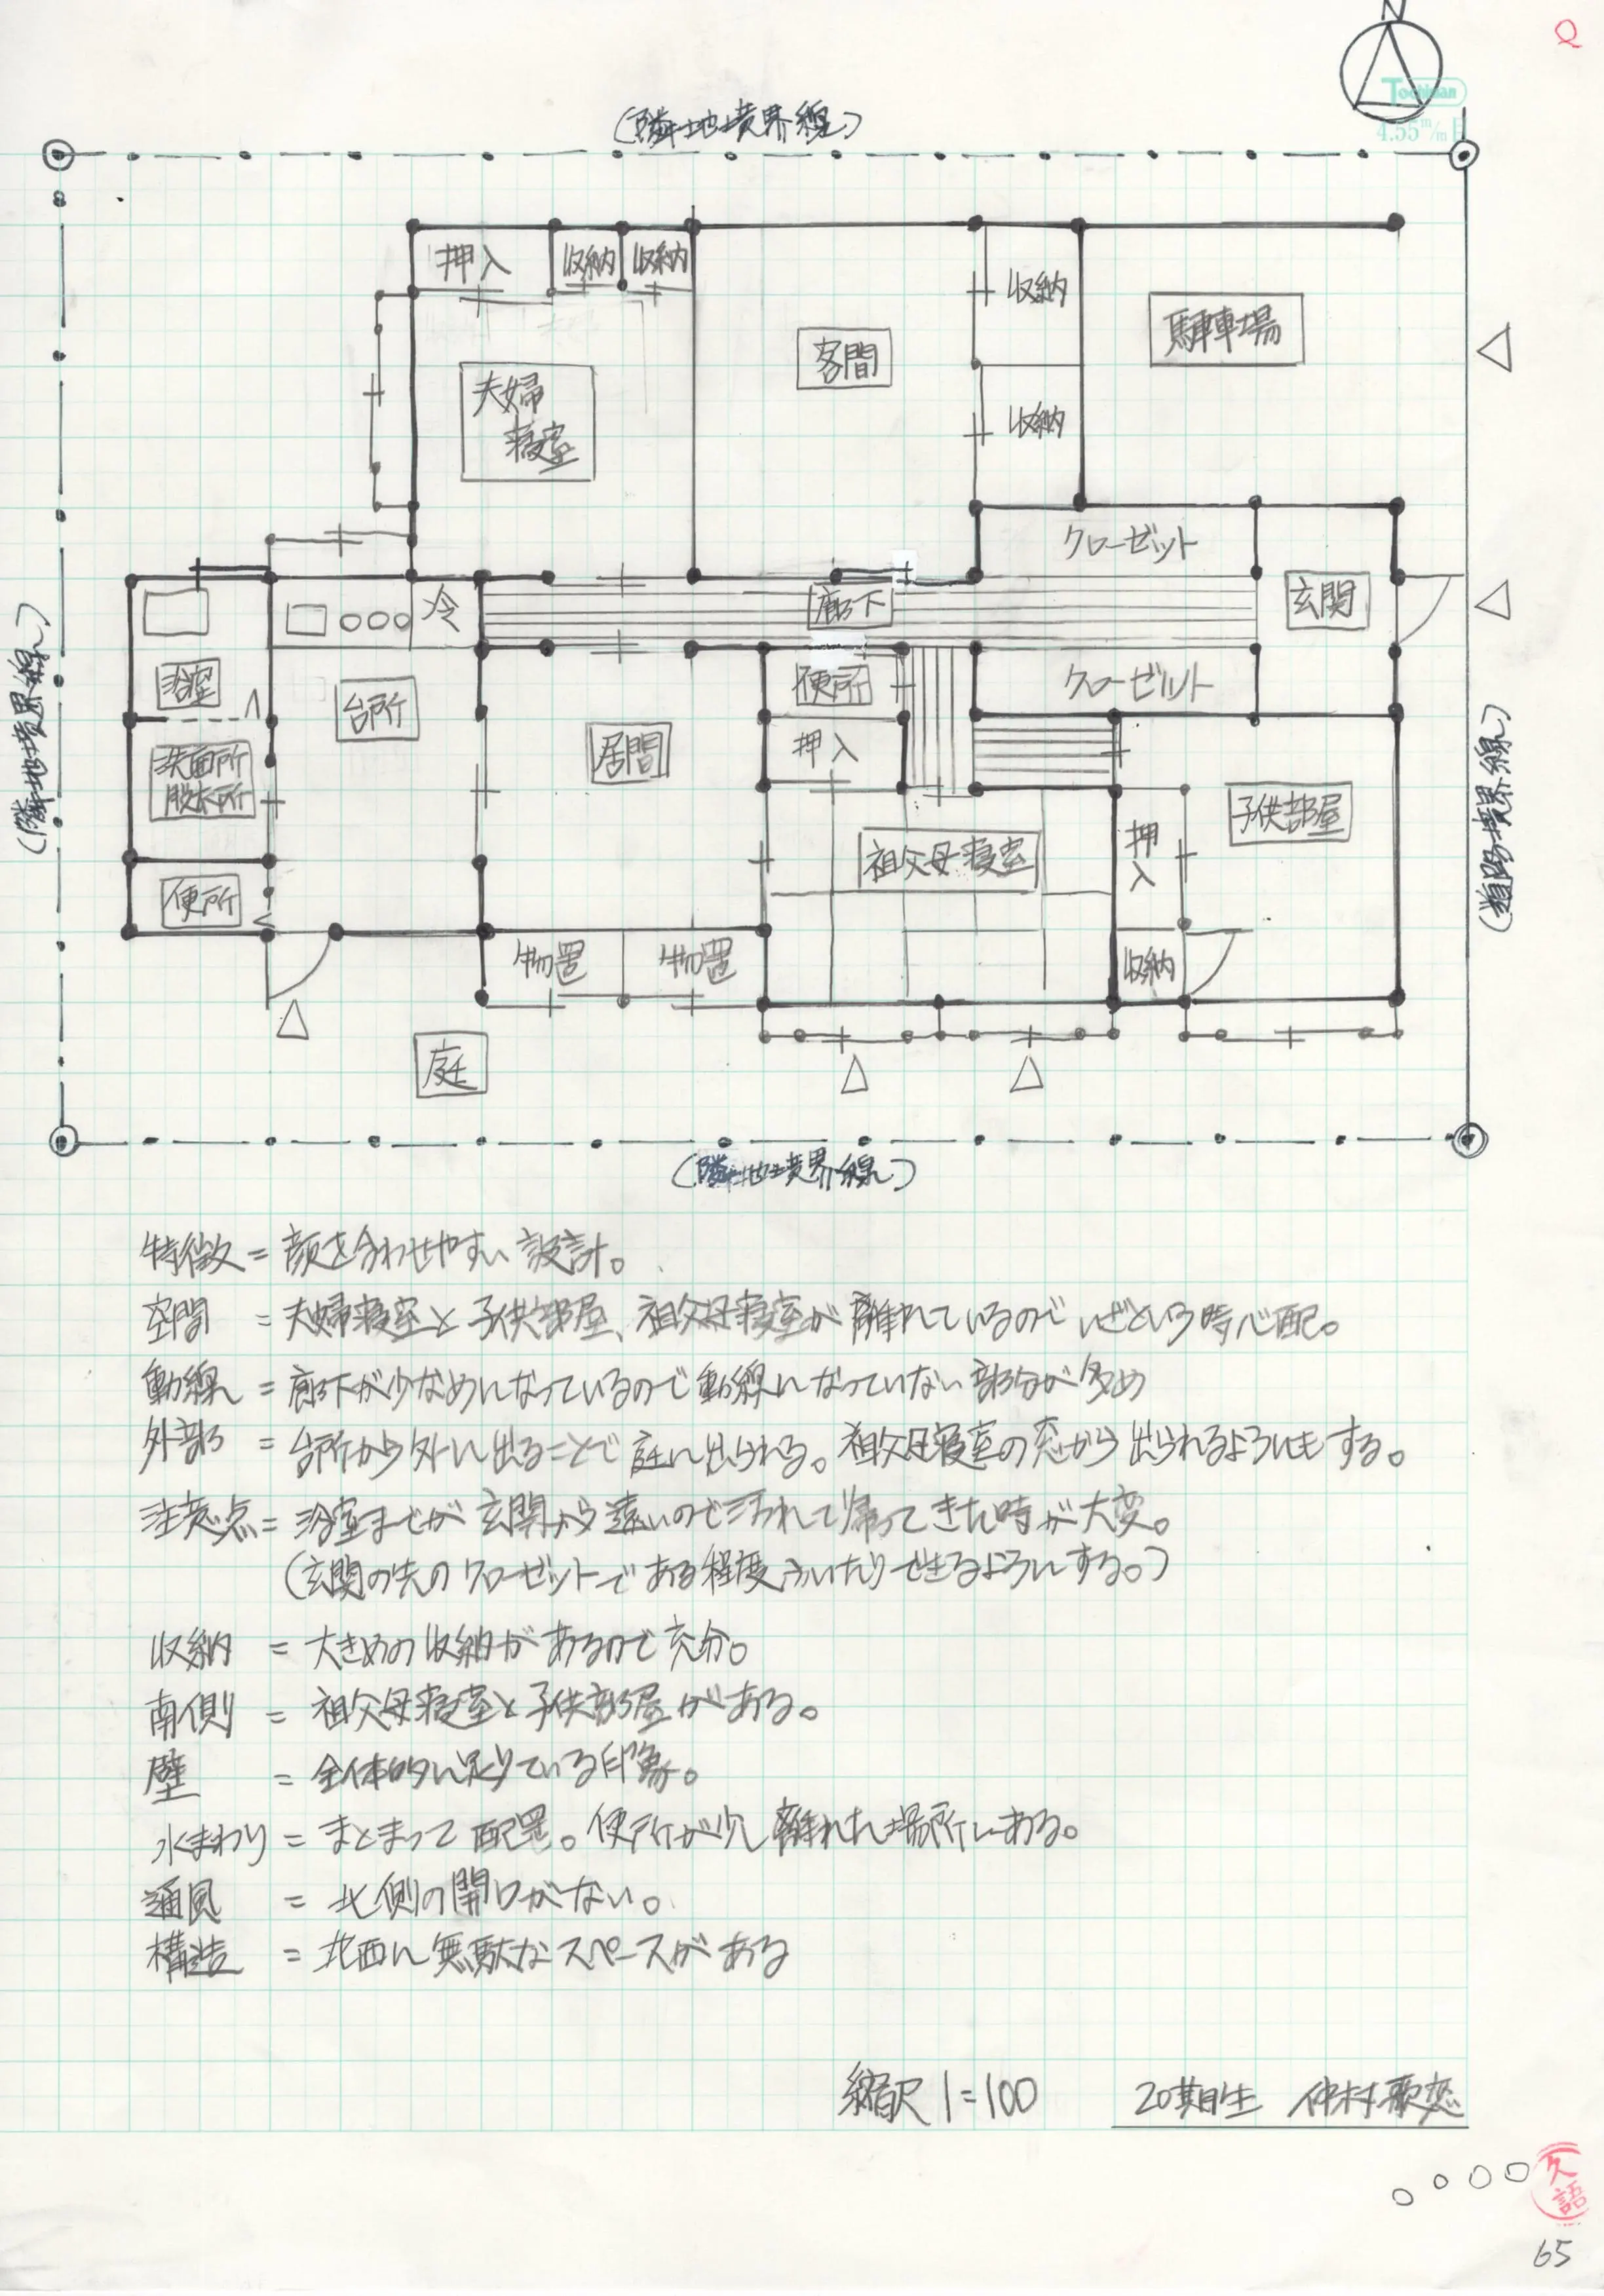 N
Tochiman
4.55m/m目
(隣地境界線)
押入
収納
収納
収納
駐車場
客間
夫婦
寝室
収納
クローゼット
玄関
冷
廊下
(隣地境界線)
浴室
台所
便所
クローゼット
居間
押入
洗面所
脱衣所
子供部屋
(道路境界線)
祖父母寝室
押
入
便所
物置
物置
収納
庭
(隣地境界線)
特徴=顔を合わせやすい設計。
空間=夫婦寝室と子供部屋、祖父母寝室が離れているのでいざという時心配。
動線=廊下が少なめになっているので動線になっていない部分が多め
外部=台所から外に出ることで庭に出られる。祖父母寝室の窓から出られるようにもする。
注意点=浴室までが玄関から遠いので汚れて帰ってきた時が大変。
(玄関の先のクローゼットである程度ふいたりできるようにする。)
収納=大きめの収納があるので充分。
南側=祖父母寝室と子供部屋がある。
壁=全体的に足りている印象。
水まわり=まとまって配置。便所が少し離れた場所にある。
通風=北側の開口がない。
構造=北西に無駄なスペースがある
縮尺1=100
20期生 仲村歌恋
久
語
65